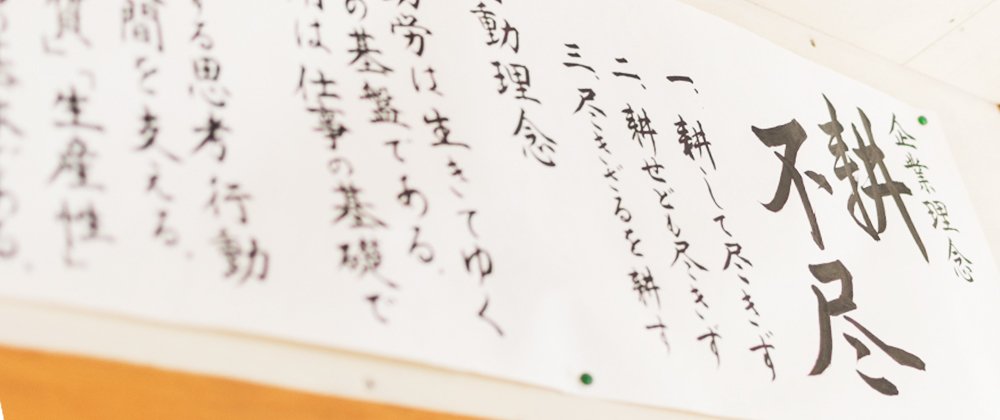 企業理念
耕不尽
一、耕して尽きず
二、耕せども尽きず
三、尽きざるを耕す
動理念
労は生きてゆく
の基盤である。
は仕事の基礎で
る思考行動
間を支える。
質」「生産性」